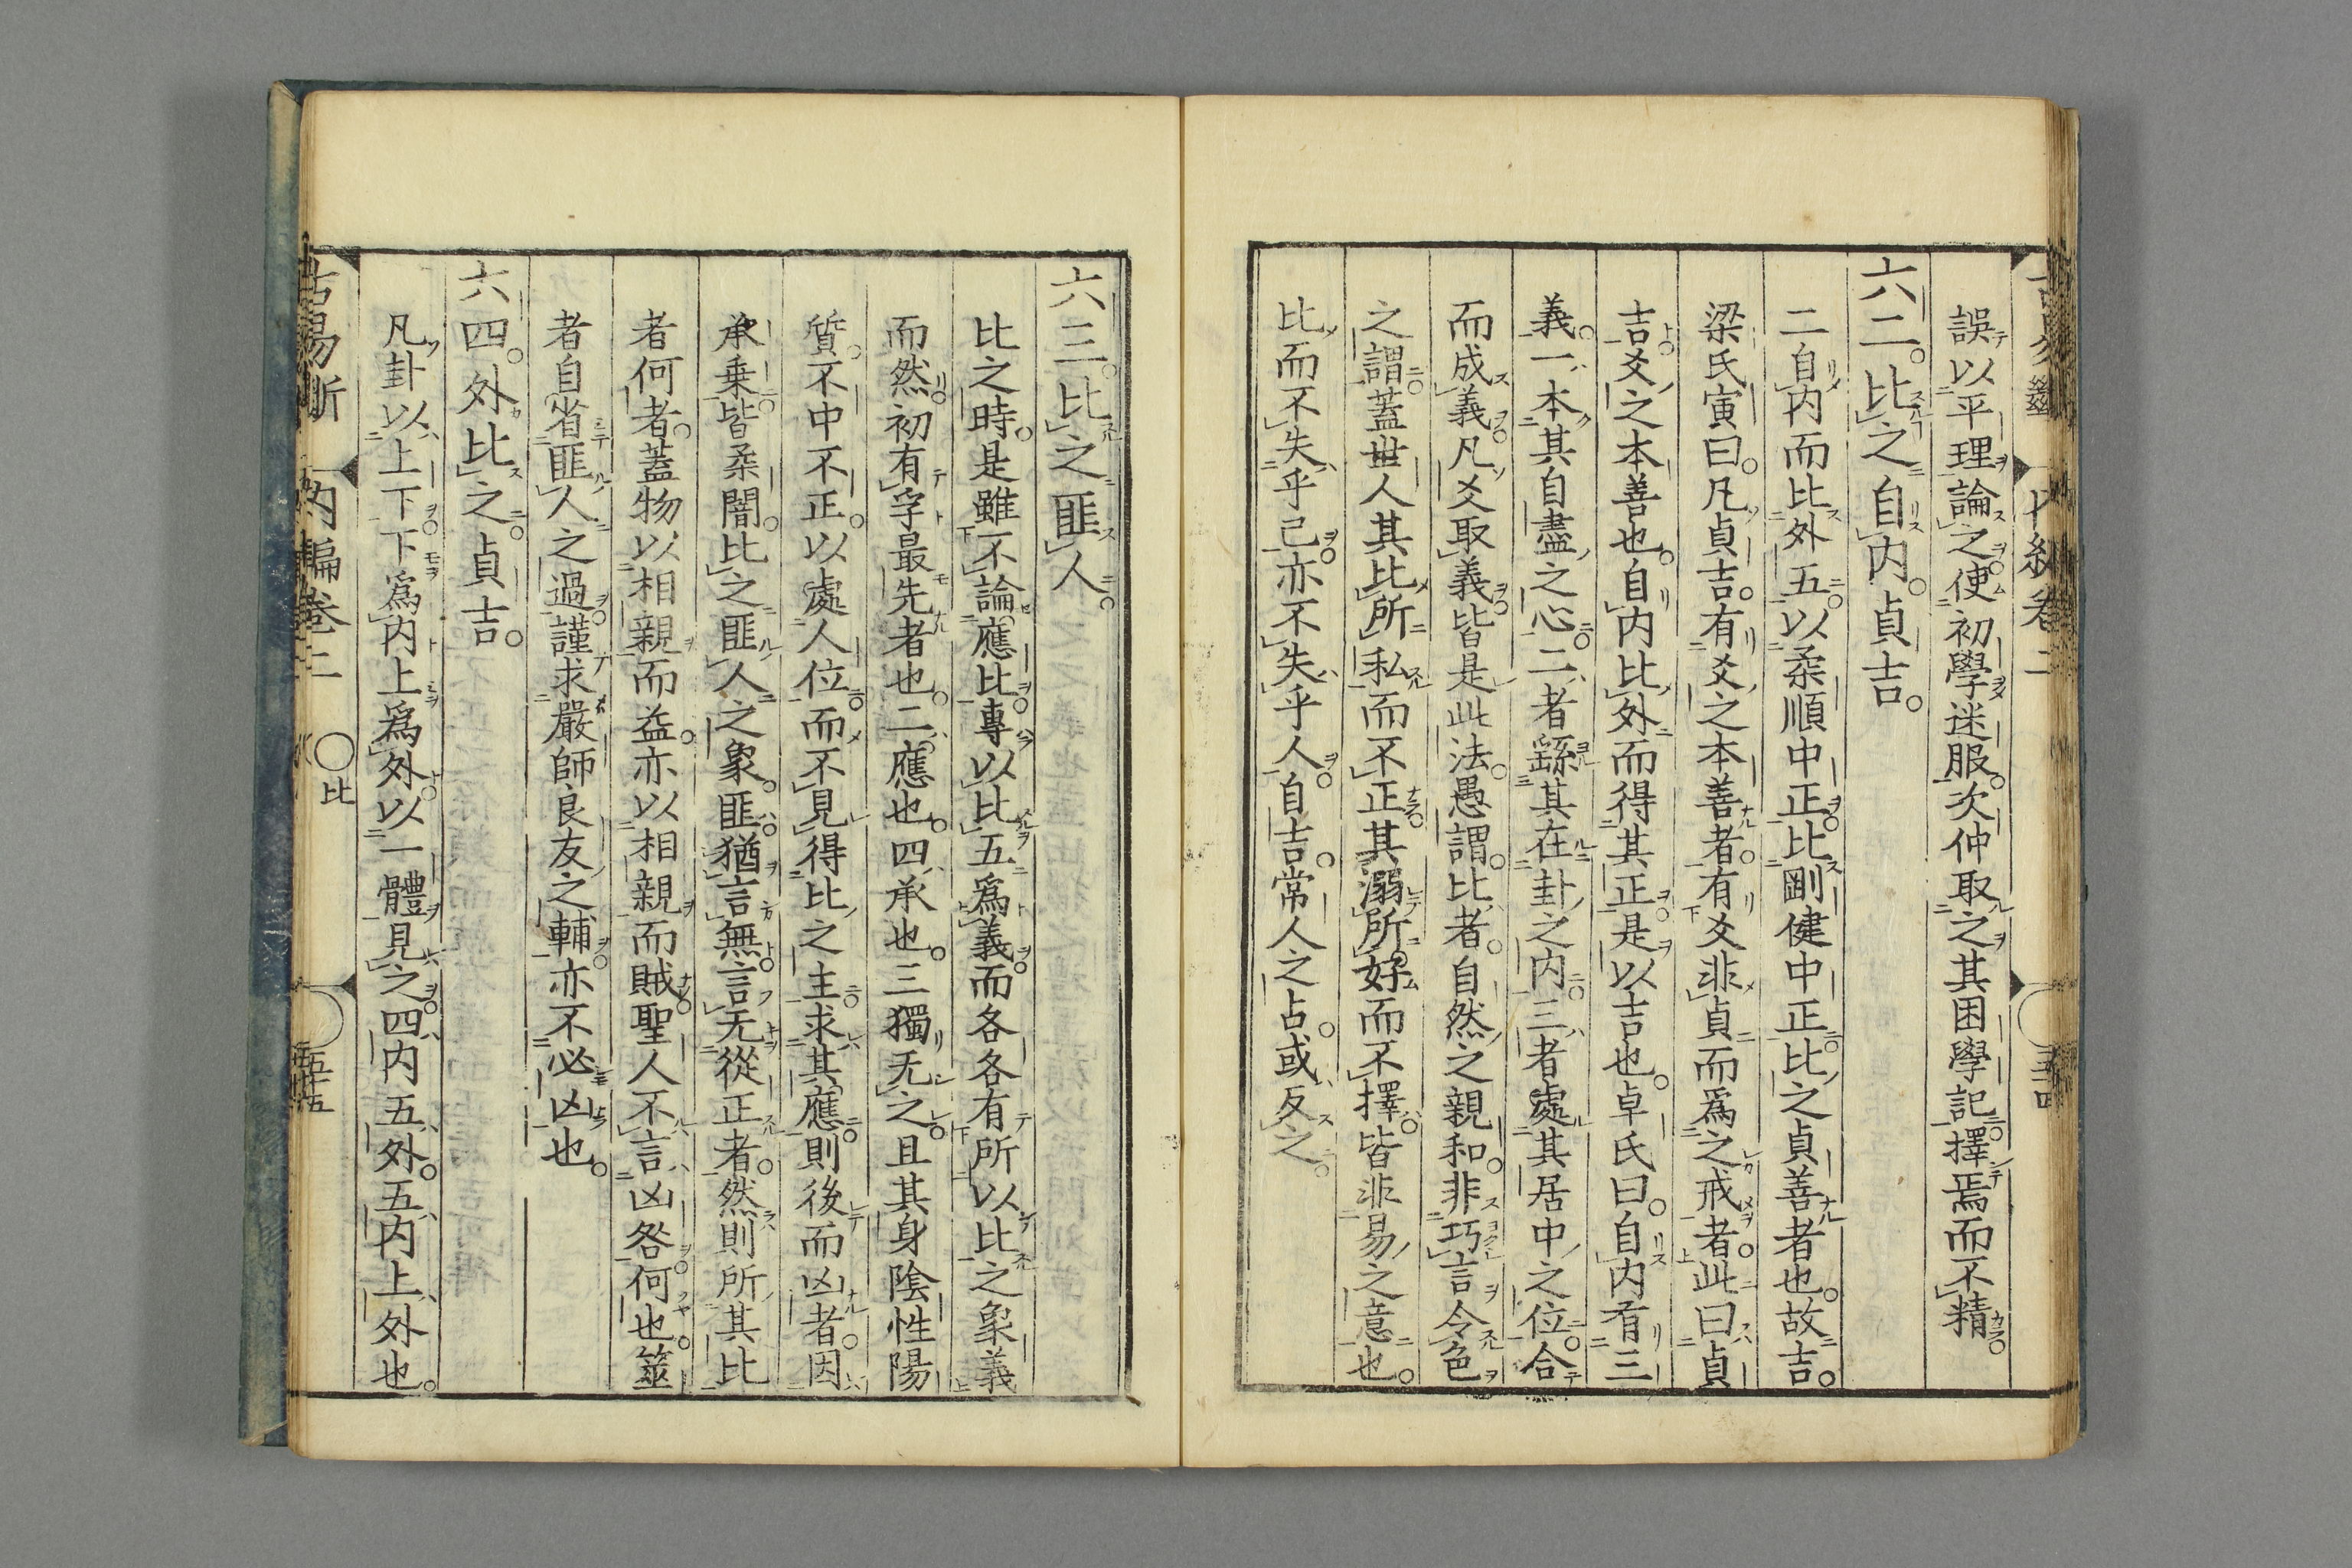 誤以平理論之使初學迷服次仲取之其困學記擇焉而不精
六二比之自内貞吉
二自内而比外五以柔順中正比剛健中正比之貞善者也故吉
梁氏寅曰凡貞吉有爻之本善者有爻非貞而爲之戒者此曰貞
吉爻之本善也自内比外而得其正是以吉也卓氏曰自内有三
義一本其自盡之心二者繇其在卦之内三者處其居中之位合
而成義凡爻取義皆是此法愚謂比者自然之親和非巧言令色
之謂蓋世人其比所私而不正其溺所好而不擇皆非易之意也
比而不失乎己亦不失乎人自吉常人之占或反之
六三比之匪人
比之時是雖不論應比專以比五爲義而各各有所以比之象義
而然初有孚最先者也二應也四承也三獨无之且其身陰性陽
質不中不正以處人位而不見得比之主求其應則後而凶者因
承乗皆柔闇比之匪人之象匪猶言無言无從正者然則所其比
者何者蓋物以相親而益亦以相親而賊聖人不言凶咎何也筮
者自省匪人之過謹求嚴師良友之輔亦不必凶也
六四外比之貞吉
凡卦以上下下爲内上爲外以一體見之四内五外五内上外也
古易斷 内編卷二 比 五十五